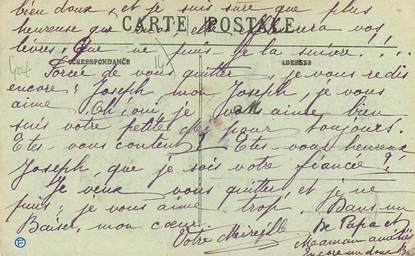 bien doux, et je suis sure que plus
CARTE POSTALE
heureuse que moi et sera vos
lèvres. Que ne puis-je la suivre!...
CORRESPONDANCE
ADRESSE
Forcée de vous quitter, je vous redis
encore: Joseph mon Joseph, je vous
aime. Oh! oui je vous aime bien
suis votre petite pour toujours.
Êtes-vous content? Êtes-vous heureux
Joseph, que je sois votre fiancée?
Je veux vous quitter et je ne
puis; je vous aime trop. Dans un
Baiser, mon cœur.
Votre Mireille
De Papa et
Maman amitiés
Encore un doux